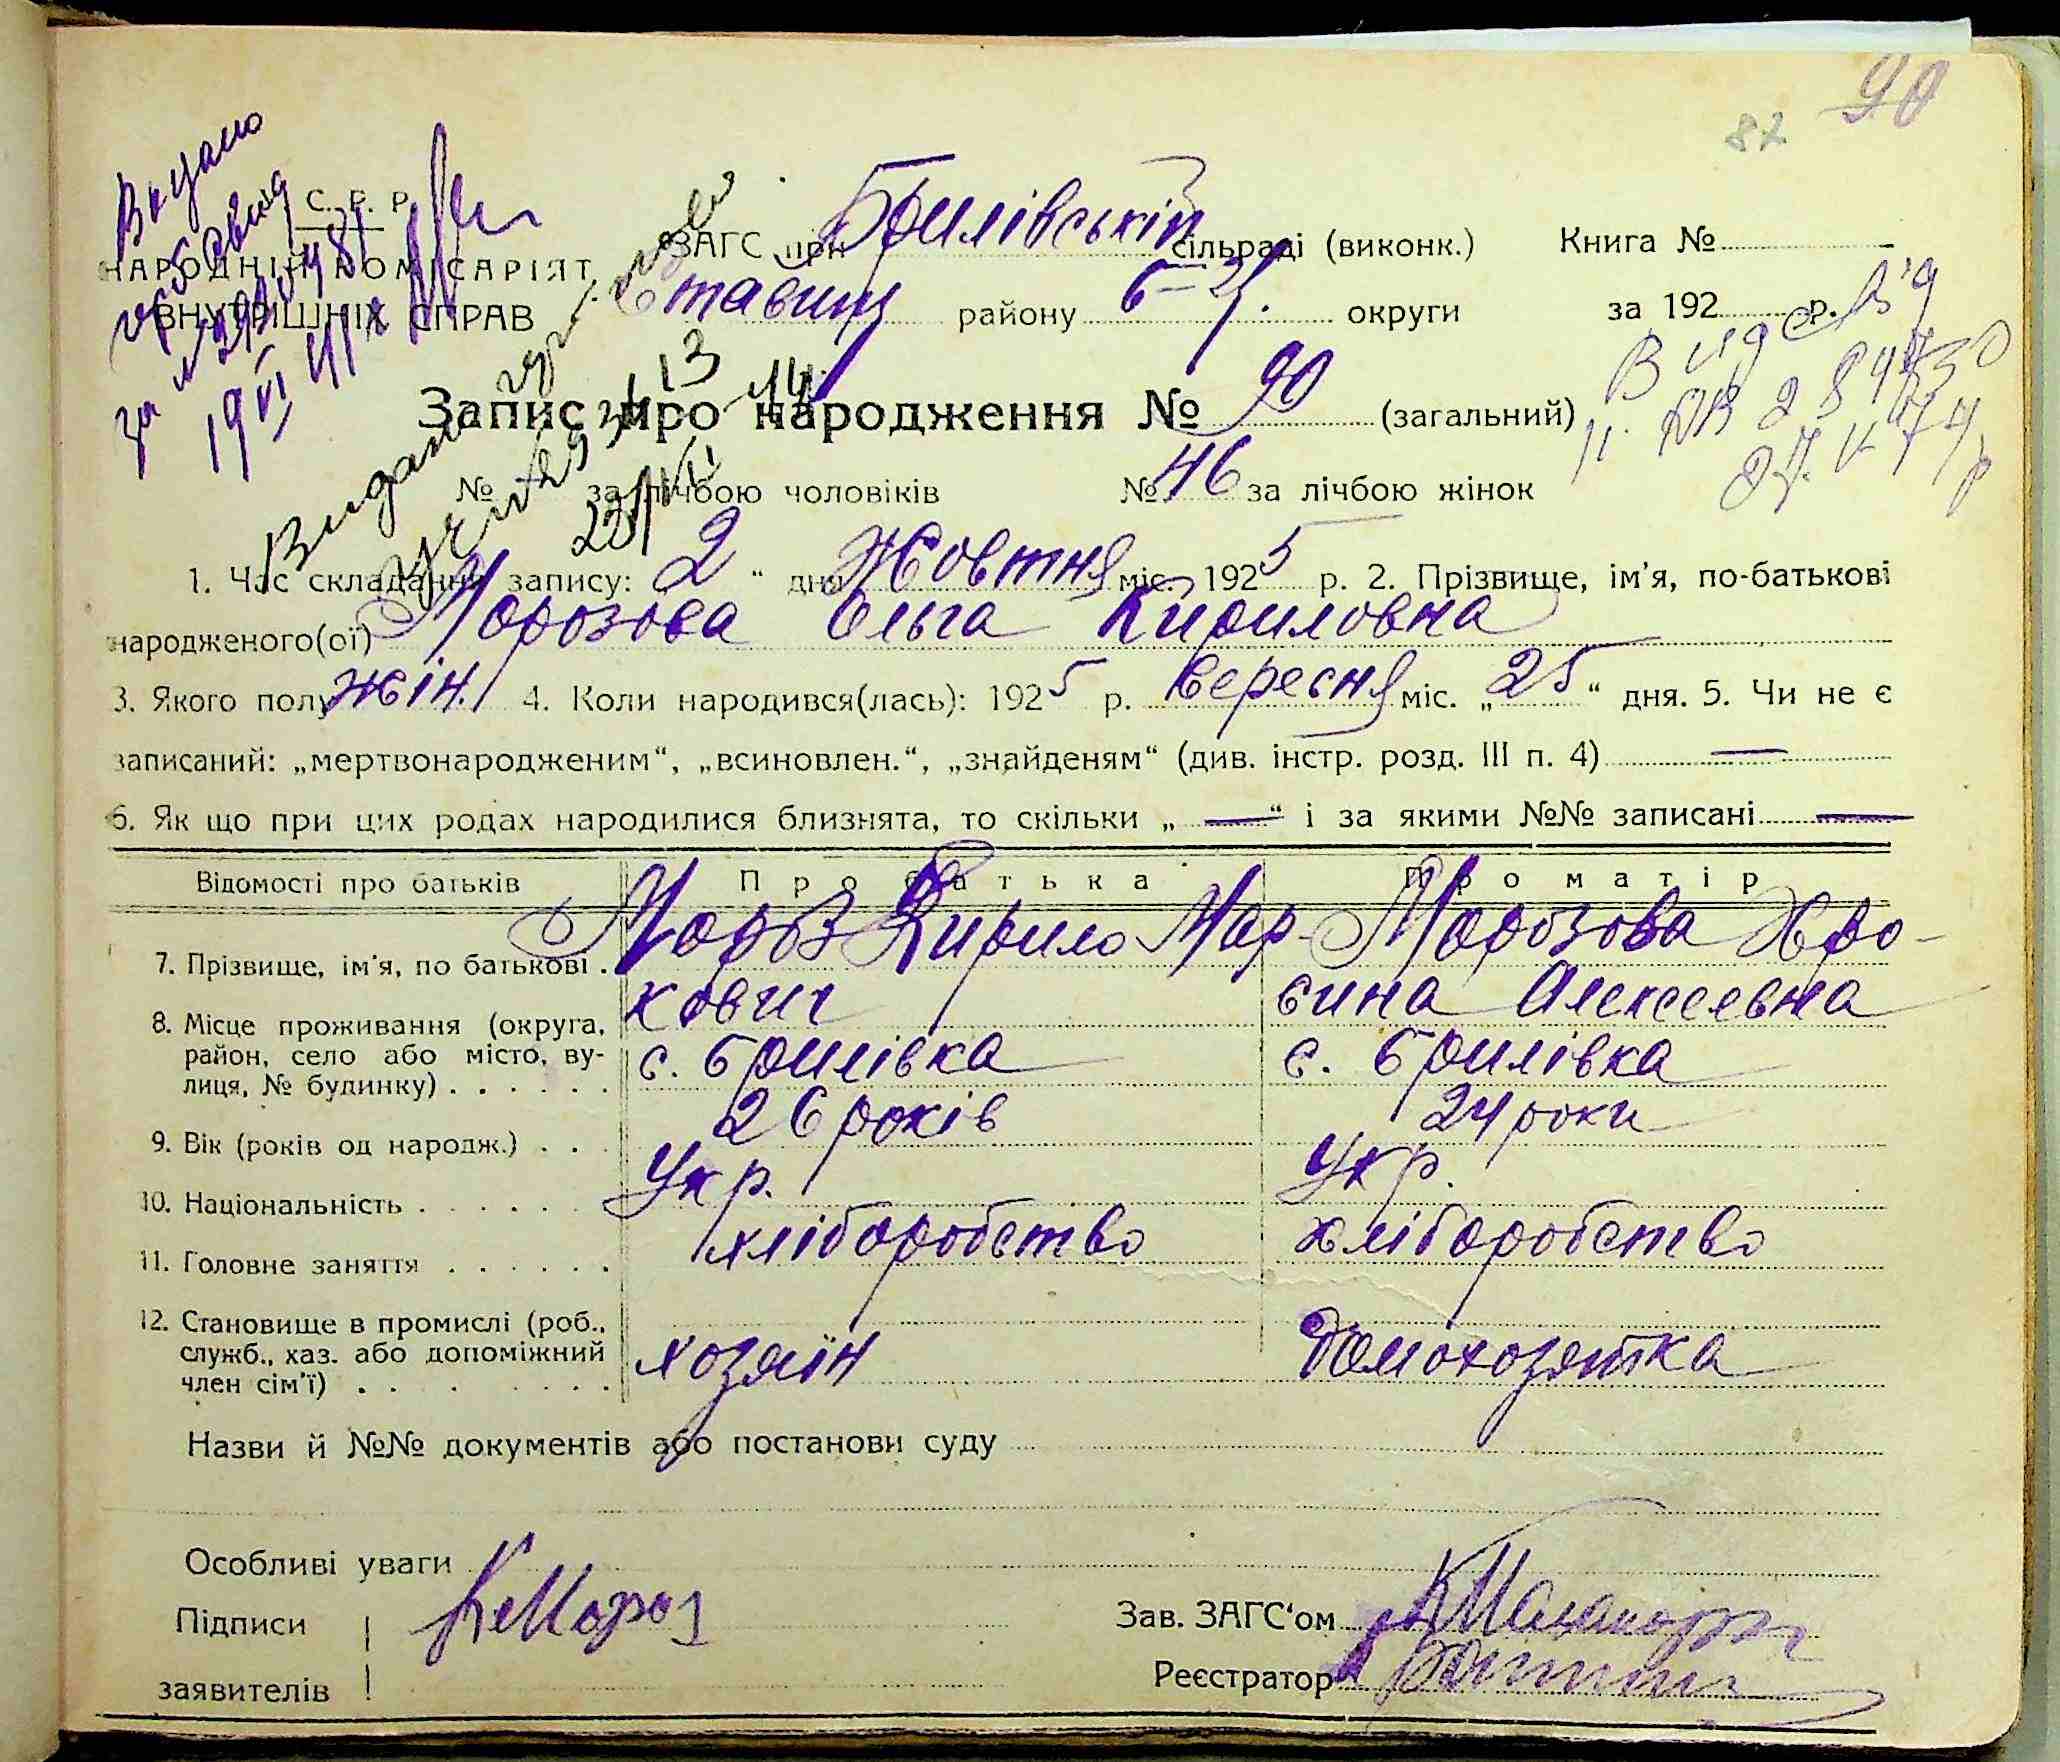 90
87
Видано
С. Р. Р.
НАРОДНІЙ КОМІСАРІЯТ
ВНУТРІШНІХ СПРАВ
19 VI 41 р
ЗАГС при Брилівській сільраді (виконк.) Книга №
Ставищ району Б-Ц. округи за 192 р.
Запис про народження № 90 (загальний)
№ за лічбою чоловіків № 46 за лічбою жінок
1. Час складання запису: 2 “ дня Жовтня міс. 1925 р. 2. Прізвище, ім'я, по-батькові
народженого(ої) Морозова Ольга Кириловна
3. Якого полу жін. 4. Коли народився(лась): 1925 р. Вересня міс. „25“ дня. 5. Чи не є
записаний: „мертвонародженим“, „всиновлен.“, „знайденям“ (див. інстр. розд. III п. 4) —
6. Як що при цих родах народилися близнята, то скільки „ — “ і за якими №№ записані —
Відомості про батьків Про батька Про матір
7. Прізвище, ім'я, по батькові . Мороз Кирило Мар- Морозова Хвро-
кович сина Алексеевна
8. Місце проживання (округа,
район, село або місто, ву-
лиця, № будинку) . . . . . . с. Брилівка с. Брилівка
9. Вік (років од народж.) . . . 26 років 24 роки
10. Національність . . . . . . Укр. Укр.
11. Головне заняття . . . . . . хліборобство хліборобство
12. Становище в промислі (роб.,
служб., хаз. або допоміжний
член сім'ї) . . . . . . хозяїн домохозяйка
Назви й №№ документів або постанови суду
Особливі уваги
Підписи К Мороз Зав. ЗАГС'ом
заявителів Реєстратор